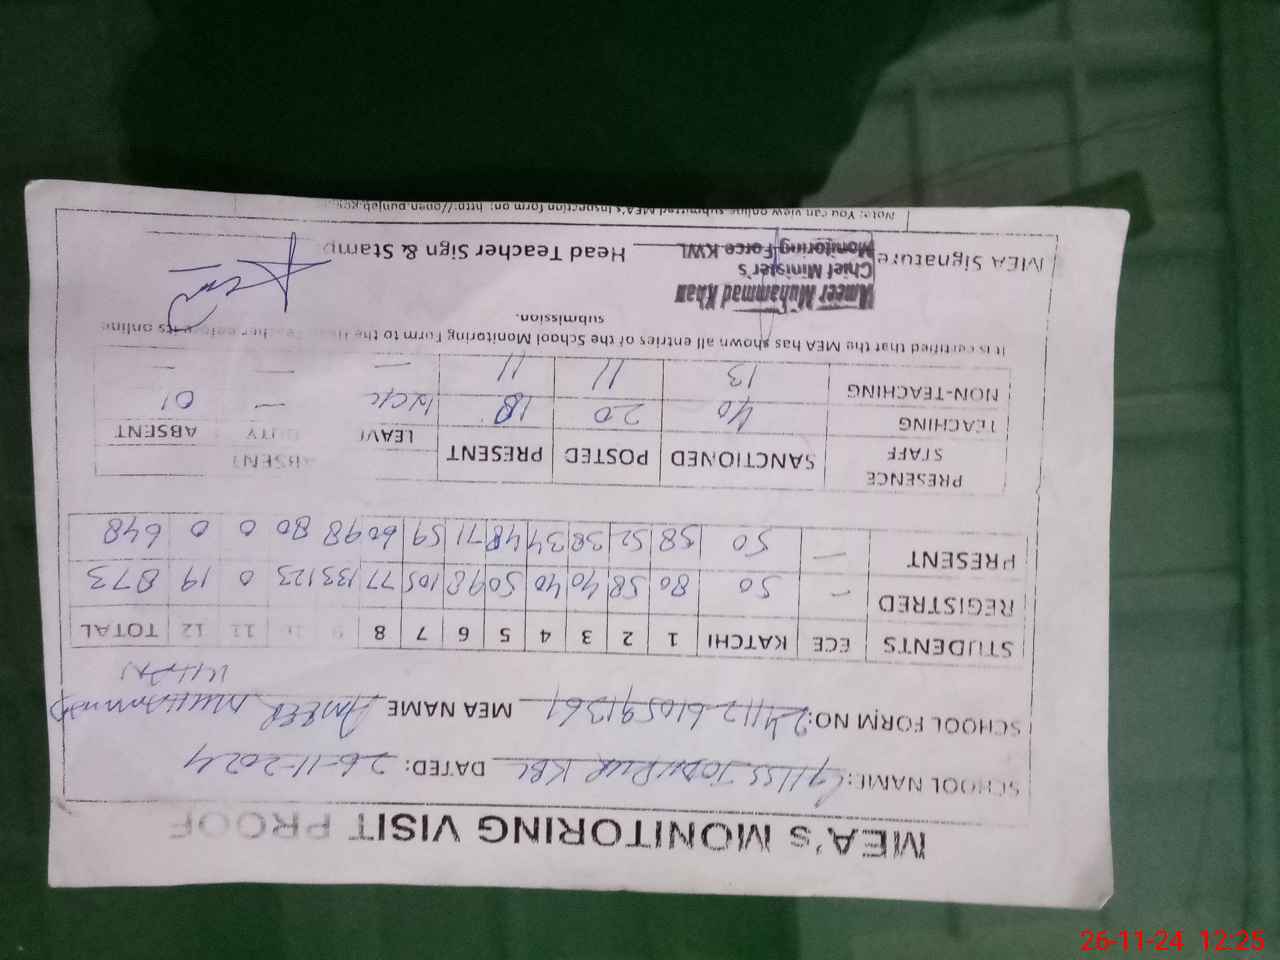 MEA's MONITORING VISIT PROOF
SCHOOL NAME: GHSS JODHPUR KBL DATED: 26-11-2024
SCHOOL FORM NO: 2411261059 1361 MEA NAME AMEER MUHAMMAD KHAN
STUDENTS ECE KATCHI 1 2 3 4 5 6 7 8 9 10 11 12 TOTAL
REGISTRED — 50 80 58 40 40 50 98 105 77 133 123 0 19 873
PRESENT — 50 58 52 38 34 48 71 59 60 98 80 0 0 648
PRESENCE STAFF SANCTIONED POSTED PRESENT LEAVE ABSENT DUTY ABSENT
TEACHING 40 20 18 — 01
NON-TEACHING 13 11 11 — — —
It is certified that the MEA has shown all entries of the School Monitoring Form to the Head Teacher before its online
submission.
Ameer Muhammad Khan
Chief Minister's
Monitoring Force KWL
MEA Signature Head Teacher Sign & Stamp
Note: You can view online submitted MEA's inspection form on: http://open.punjab.gov.
26-11-24 12:25